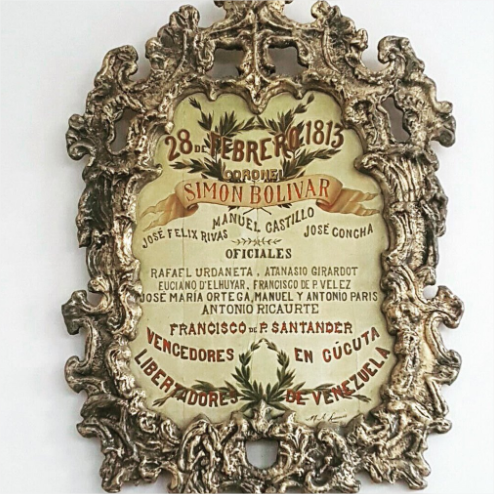 28 DE FEBRERO, 1813
CORONEL
SIMON BOLIVAR
MANUEL CASTILLO
JOSÉ FELIX RIVAS JOSÉ CONCHA
OFICIALES
RAFAEL URDANETA . ATANASIO GIRARDOT
EUCIANO D'ELHUYAR, FRANCISCO DE P. VELEZ
JOSÉ MARÍA ORTEGA, MANUEL Y ANTONIO PARIS
ANTONIO RICAURTE
FRANCISCO DE P. SANTANDER
VENCEDORES EN CÚCUTA
LIBERTADORES DE VENEZUELA